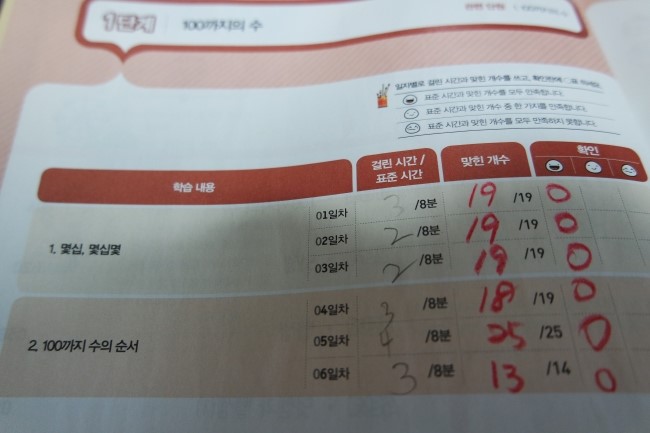 1단계 100까지의 수
일자별로 걸린 시간과 맞힌 개수를 쓰고, 확인란에 ○표 하세요.
표준 시간과 맞힌 개수를 모두 만족합니다.
표준 시간과 맞힌 개수 중 한 가지를 만족합니다.
표준 시간과 맞힌 개수를 모두 만족하지 못합니다.
학습 내용 걸린 시간 / 표준 시간 맞힌 개수 확인
1. 몇십, 몇십몇
01일차 3 /8분 19 /19 O
02일차 2 /8분 19 /19 O
03일차 2 /8분 19 /19 O
2. 100까지 수의 순서
04일차 3 /8분 18 /19 O
05일차 4 /8분 25 /25 O
06일차 3 /8분 13 /14 O